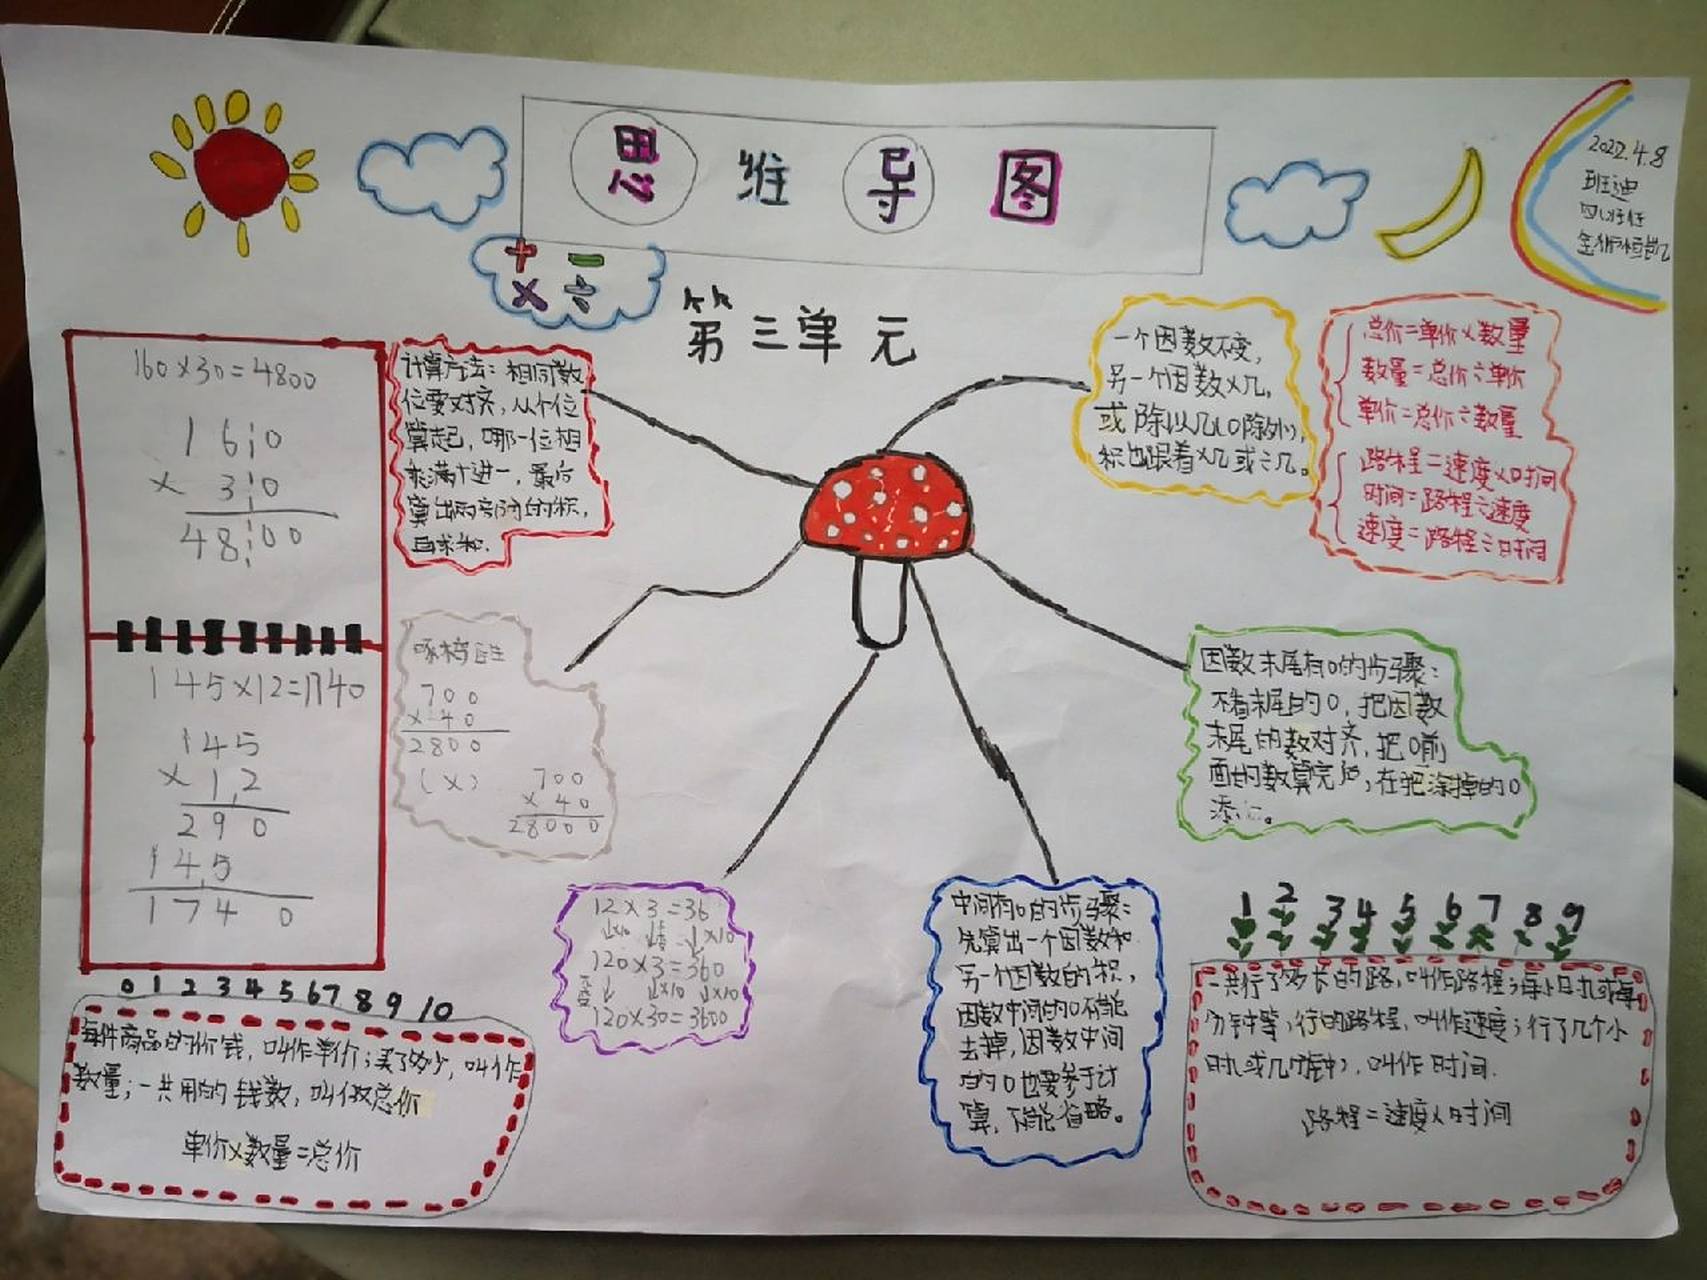 思维导图
2022.4.8
第三单元
+ -
× ÷
160×30=4800
160
× 30
4800
145×12=1740
145
× 12
290
145
1740
计算方法：相同数
位要对齐，从个位
算起，哪一位相
乘满十进一，最后
算出两部分的积，
再求和.
700
× 40
2800
(×)
700
× 40
28000
一个因数不变，
另一个因数×几，
或除以几(0除外)，
积也跟着×几或÷几。
总价=单价×数量
数量=总价÷单价
单价=总价÷数量
路程=速度×时间
时间=路程÷速度
速度=路程÷时间
因数末尾有0的步骤：
不看末尾的0，把因数
末尾的数对齐，把0前
面的数算完后，在把涂掉的0
添
12×3=36
↓×10 ↓ ↓×10
120×3=360
↓ ↓×10 ↓×10
120×30=3600
中间有0的步骤：
先算出一个因数和
另一个因数的积，
因数中间的0不能
去掉，因数中间
的0也要参于计
算，不能省略。
0 1 2 3 4 5 6 7 8 9 10
每件商品的价钱，叫作单价；买了多少，叫作
数量；一共用的钱数，叫做总价
单价×数量=总价
1 2 3 4 5 6 7 8 9
一共行了多长的路，叫作路程；每小时(或每
分钟等)行的路程，叫作速度；行了几个小
时(或几分钟)，叫作时间.
路程=速度×时间